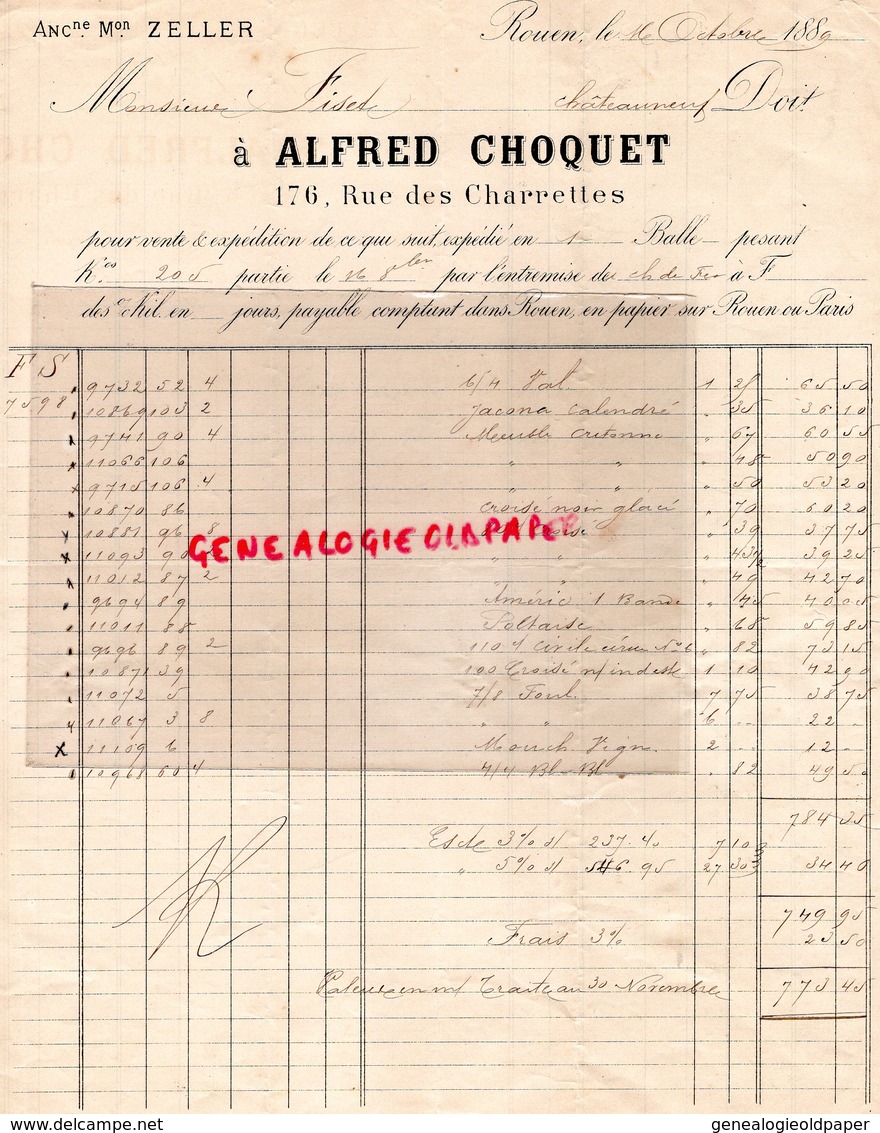 ANCne. Mon ZELLER
Rouen, le 16 Octobre 1889
Monsieur Fiset Châteauneuf Doit
à ALFRED CHOQUET
176, Rue des Charrettes
pour vente & expédition de ce qui suit, expédié en 1 Balle pesant
K.os 205 partie le 16 8bre par l'entremise de ch de Fer à F
des % Kil. en jours, payable comptant dans Rouen, en papier sur Rouen ou Paris
F S
9732 52 4 6/4 Val 1 25 65 50
7598 10869 103 2 Jacona Calendré " 35 36 10
9741 90 4 Meuble Cretonne " 67 60 55
11066 106 " " " 48 50 90
9715 106 4 " " " 50 53 20
10870 86 Croisé noir glacé " 70 60 20
10881 96 8 " 39 37 75
11093 90 " " " 43 1/2 39 25
11012 87 2 " " " 49 42 70
9694 89 Améric 1 Bande " 45 40 05
11011 88 " 68 59 85
9696 89 2 110 " 82 73 15
10871 39 100 Croisé 1 10 42 90
11072 5 7/8 Foul. 7 75 38 75
11067 3 8 " " 6 .. 22 -
11109 6 Mouch. Vign. 2 .. 12 -
10968 60 4 4/4 Bl-Bl " 82 49 50
784 35
Escte 3% s/ 237.40 7 10
" 5% s/ 546 95 27 30 34 40
749 95
Frais 3% 23 50
Valeur en m/ Traite au 30 Novembre 773 45
GENEALOGIEOLDPAPER
delcampe.net
genealogieoldpaper